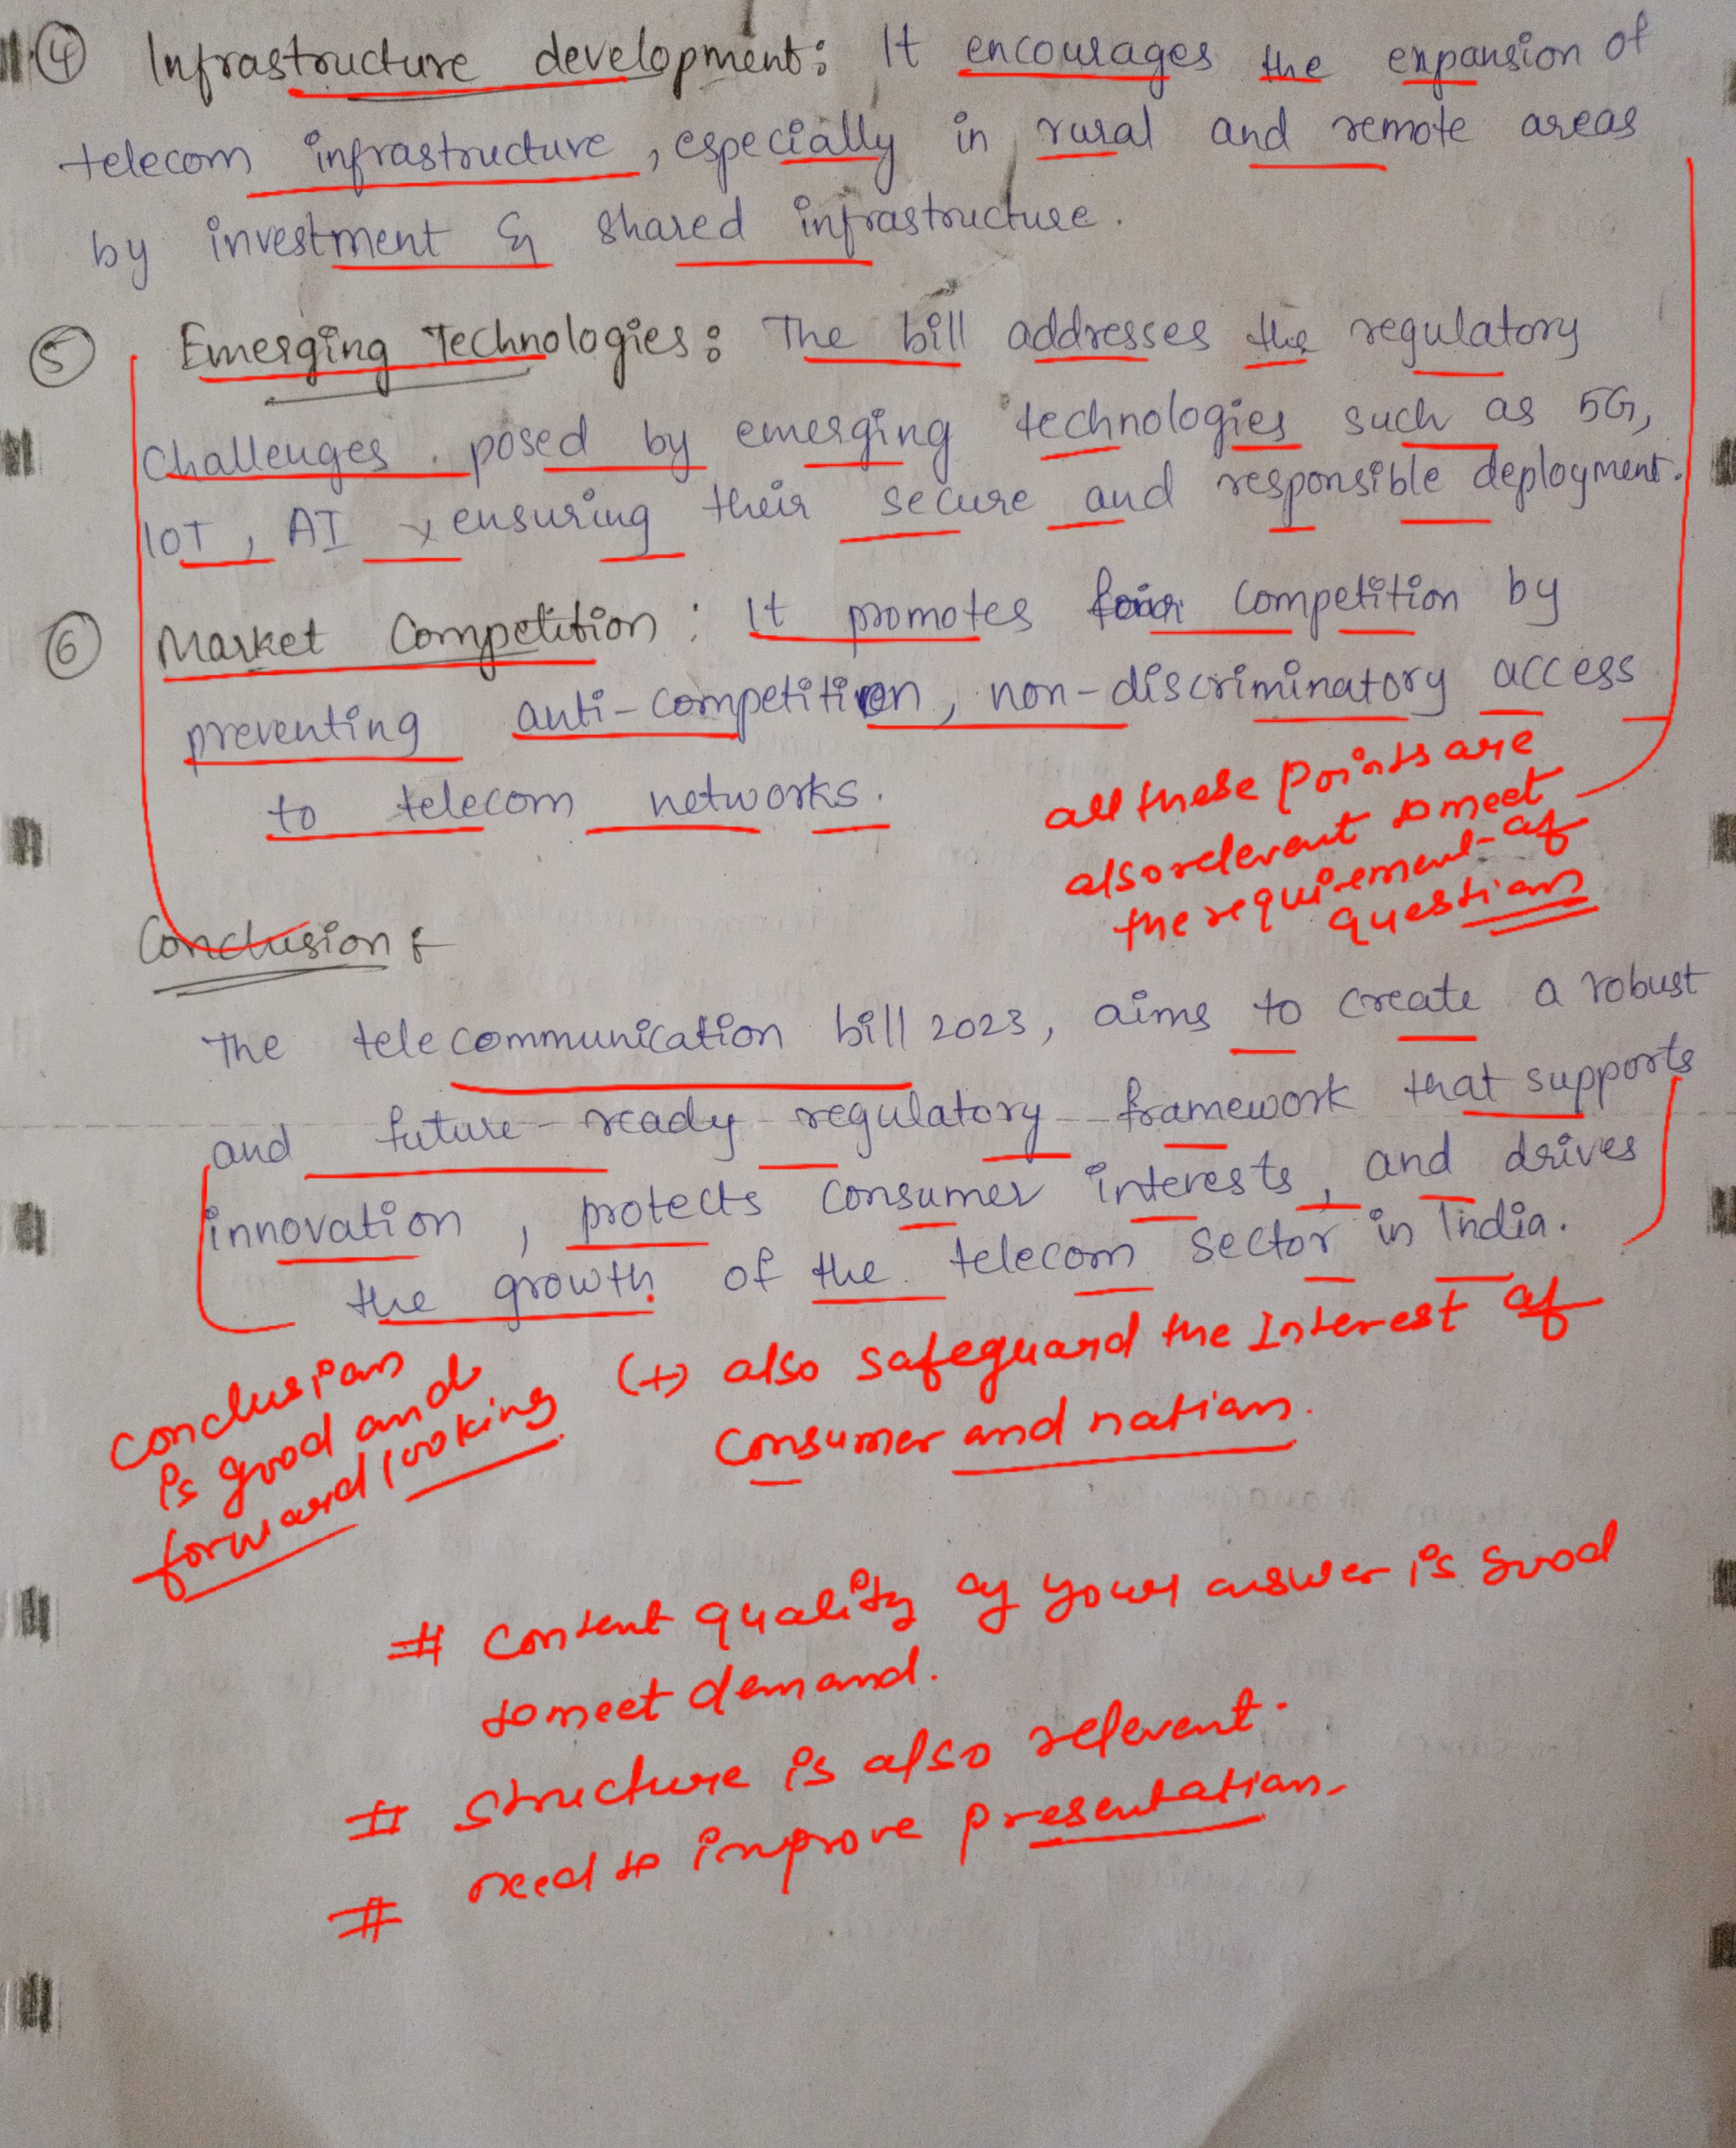 ④ Infrastructure development: It encourages the expansion of
telecom infrastructure, especially in rural and remote areas
by investment & shared infrastructure.
⑤ Emerging Technologies: The bill addresses the regulatory
Challenges posed by emerging technologies such as 5G,
IOT, AI, ensuring their secure and responsible deployment.
⑥ Market Competition: It promotes fair competition by
preventing anti-competition, non-discriminatory access
to telecom networks.
all these points are
also relevent to meet
the requirement of
question
Conclusion:
The telecommunication bill 2023, aims to create a robust
and future-ready regulatory framework that supports
innovation, protects consumer interests, and drives
the growth of the telecom sector in India.
Conclusion
is good and
forward looking
(+) also safeguard the Interest of
Consumer and nation.
# Content quality of your answer is good
to meet demand.
# Structure is also relevent.
# need to improve presentation.